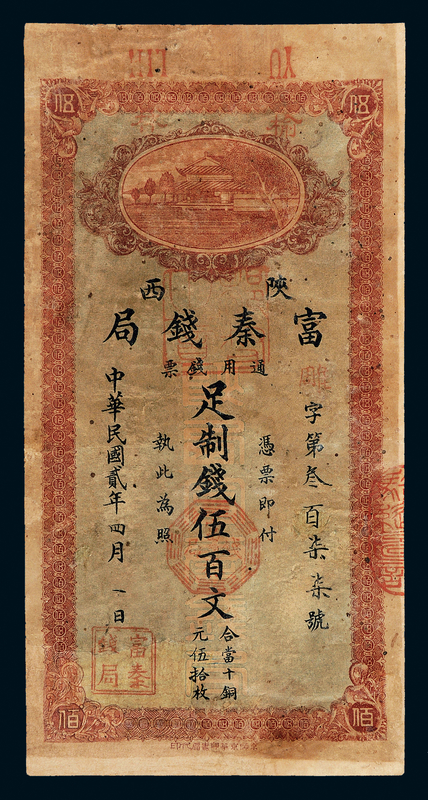 陝西
富秦錢局
通用錢票
雕字第叁百柒柒號
憑票即付
足制錢伍百文
合當十銅
元伍拾枚
執此為照
中華民國貳年四月一日
富秦
錢局
伍
伍
佰
佰